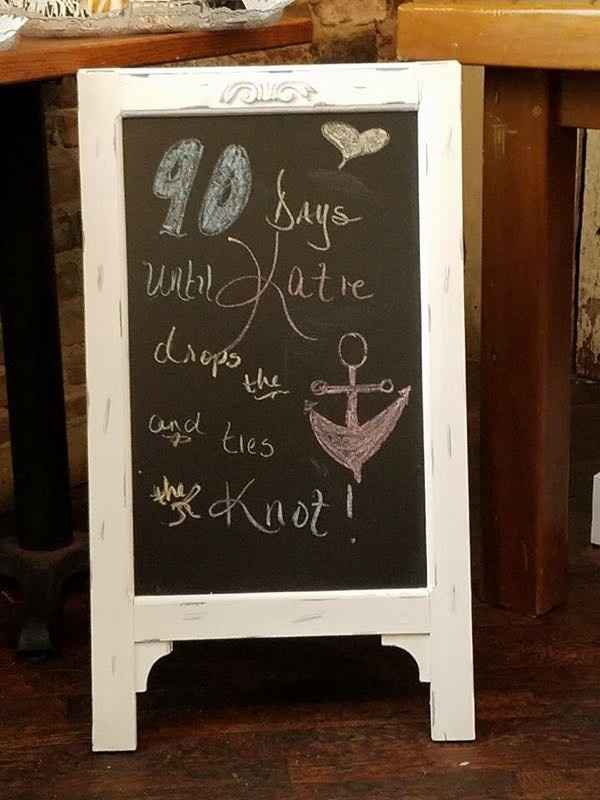 90 Days
until Katie
drops the
and ties
the Knot!